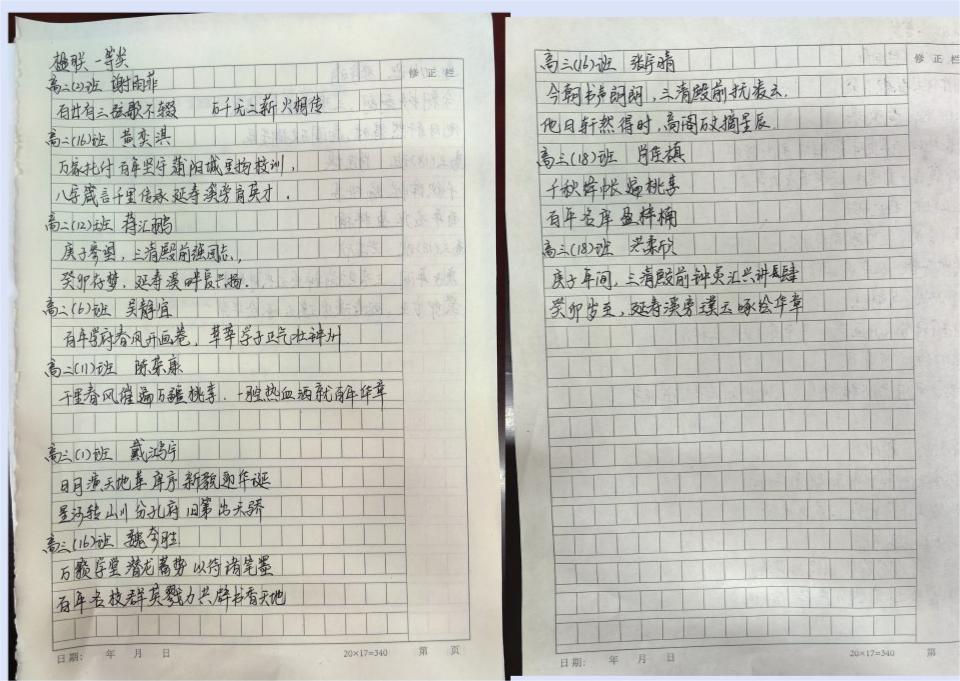 楹联 一等奖
高二(2)班 谢雨菲
百廿有三弦歌不辍 万千无二薪火相传
高二(16)班 黄奕淇
万家托付百年坚守莆阳城里扬校训，
八字箴言千里传承延寿溪旁育英才.
高二(12)班 蒋汇鹏
庚子峥嵘，三清殿前强国志，
癸卯存梦，延寿溪畔长兴扬.
高二(6)班 吴静宜
百年学府春风开画卷，莘莘学子正气壮神州
高二(11)班 陈荣康
千里春风催遍万疆桃李. 一腔热血洒就百年华章
高三(1)班 戴鸿宇
日月演天地革庠序新貌迎华诞
星河转山川分孔府旧第出天骄
高三(16)班 魏
万籁学堂潜龙蓄势以待诸笔墨
百年名校群英戮力共辟书香天地
日期: 年 月 日 20×17=340 第 页
修正栏
高三(16)班 张宇晴
今朝书声朗朗，三清殿前抗凌云.
他日轩然得时，高阁万丈摘星辰.
高三(18)班 肖
千秋绛帐遍桃李
百年名庠盈梓楠
高三(18)班 洪柔欣
庚子年间，三清殿前钟灵汇兴讲肆
癸卯岁至，延寿溪旁璞玉啄绘华章
修正栏
日期: 年 月 日 20×17=340 第